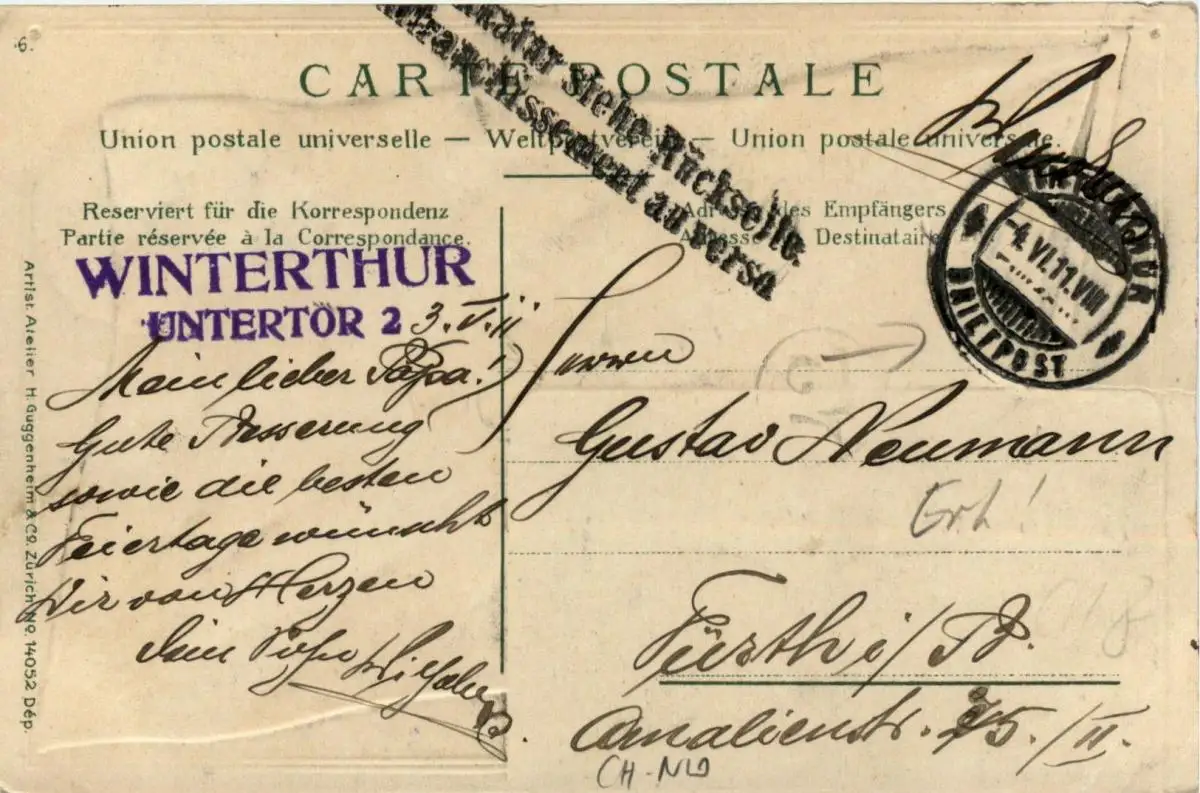 6.
CARTE POSTALE
Union postale universelle — Weltpostverein — Union postale universelle.
Frankatur siehe Rückseite.
Affranchissement au verso
Reserviert für die Korrespondenz
Partie réservée à la Correspondance.
Adresse des Empfängers
Adresse du Destinataire
WINTERTHUR
-4.VI.11.VIII
BRIEFPOST
WINTERTHUR
UNTERTOR 2
3.V.11
Mein lieber Papa!
Gute Besserung
sowie die besten
Feiertage wünscht
Dir von Herzen
Dein Sohn Wilhelm
Herren
Gustav Neumann
Erh!
Fürth i/B.
Amalienstr. 75./II.
CH-NW
Artist. Atelier H. Guggenheim & Co. Zürich No. 14052 Dép.